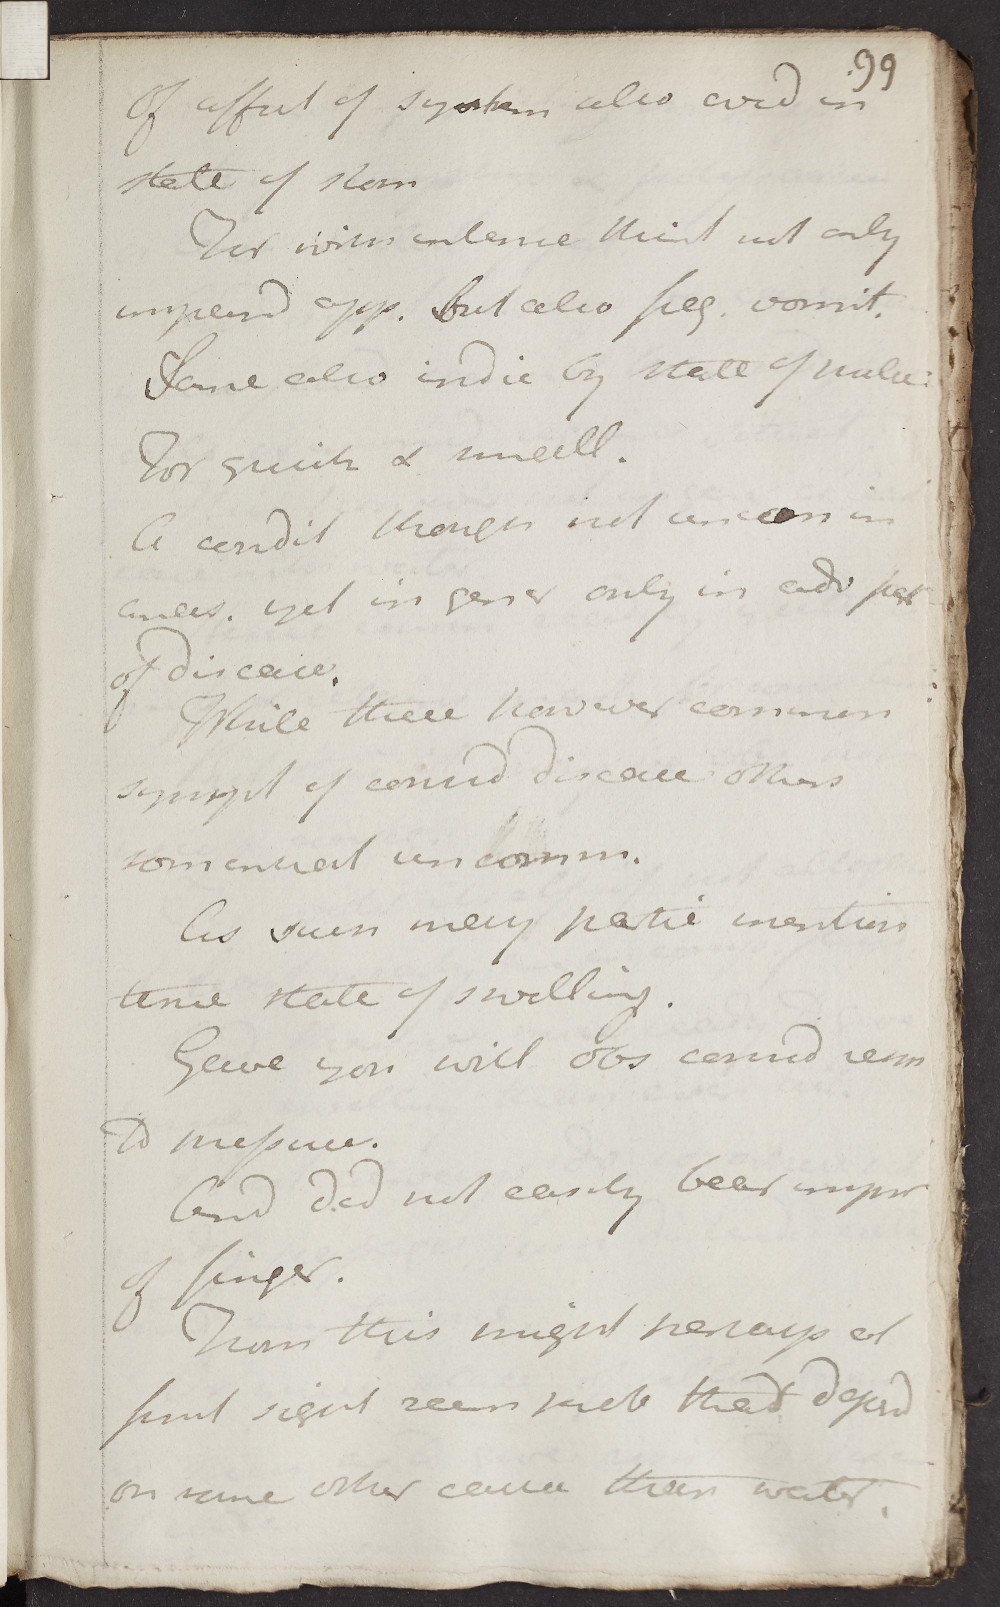 99
Of affect of system also evid in
state of stom
For with intense thirst not only
impaird app. but also freq. vomit.
Same also indic by state of pulse
For quick & small.
A condit though not uncom in
anas. yet in gener only in adv per
of disease.
While these however common
sympt of consid disease others
somewhat uncomm.
As such may partic mention
tense state of swelling.
Gave you will obs consid resis
to pressure.
And did not easily bear impr
of finger.
From this might perhaps at
first sight seem prob that depend
on some other cause than water.